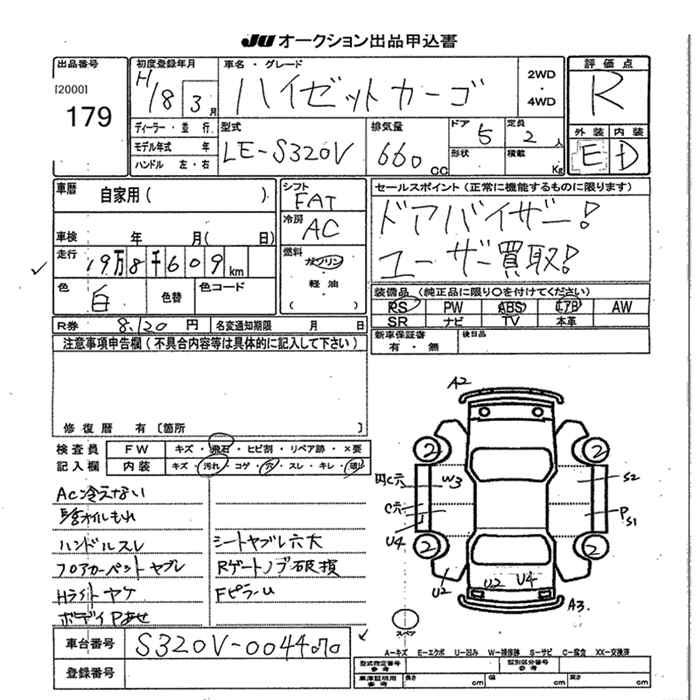 JU オークション出品申込書
出品番号
[2000]
179
初度登録年月
H18 3月
車名・グレード
ハイゼットカーゴ
2WD
・
4WD
評価点
R
ディーラー・並行
モデル年式 年
ハンドル 左・右
型式
LE-S320V
排気量
660 CC
ドア 5
形状
定員 2人
積載 Kg
外装 内装
E D
車歴 自家用( )
車検 年 月( 日)
走行 19万8千609km
色 白 色替 色コード
R券 8,120円 名変通知期限 月 日
シフト
FAT
冷房
AC
燃料
ガソリン
・
軽油
( )
セールスポイント(正常に機能するものに限ります)
ドアバイザー!
ユーザー買取!
装備品(純正品に限り○を付けてください)
PS PW ABS エアB AW
SR ナビ TV 本革
新車保証書
有・無
後日品
注意事項申告欄(不具合内容等は具体的に記入して下さい)
修復歴 有〔箇所 〕
検査員 FW キズ・飛石・ヒビ割・リペア跡・×要
記入欄 内装 キズ・汚れ・コゲ・穴・スレ・キレ・臭い
AC冷えない
オイルもれ
ハンドルスレ
シートヤブレ穴大
フロアカーペットヤブレ
Rゲートノブ破損
Hライトヤケ
FピラーU
ボディPあせ
A2
2 2
W3
S2
C穴
C穴
P
S1
U4
2 2
U2 U2 U4
A3
スペア
車台番号 S320V-0044070
登録番号
A-キズ E-エクボ U-凹み W-補修跡 S-サビ C-腐食 XX-交換済
型式指定番号
参考
類別区分番号
参考
車庫証明用
参考
長さ cm 幅 cm 高さ cm